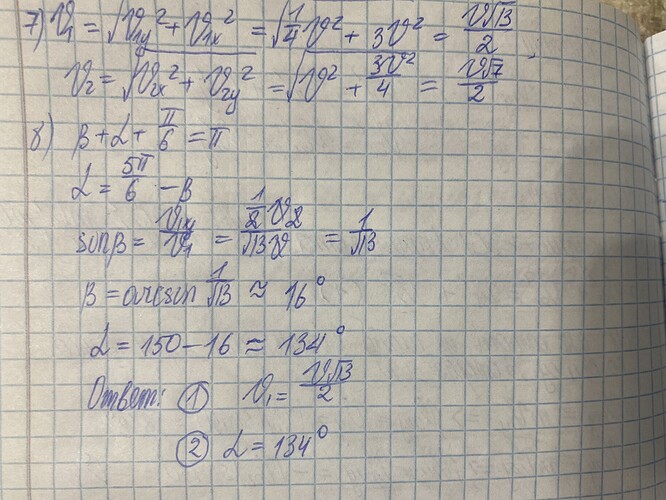 7) ϑ₁ = √(ϑ₁y² + ϑ₁x²) = √(1/4 ϑ² + 3ϑ²) = ϑ√13/2 ,
ϑ₂ = √(ϑ₂x² + ϑ₂y²) = √(ϑ² + 3ϑ²/4) = ϑ√7/2
8) β + α + π/6 = π
α = 5π/6 − β
sinβ = ϑ₁y/ϑ₁ = (1/2 ϑ 2)/(√13 ϑ) = 1/√13
β = arcsin 1/√13 ≈ 16°
α = 150 − 16 ≈ 134°
Ответ: ① ϑ₁ = ϑ√13/2
② α = 134°